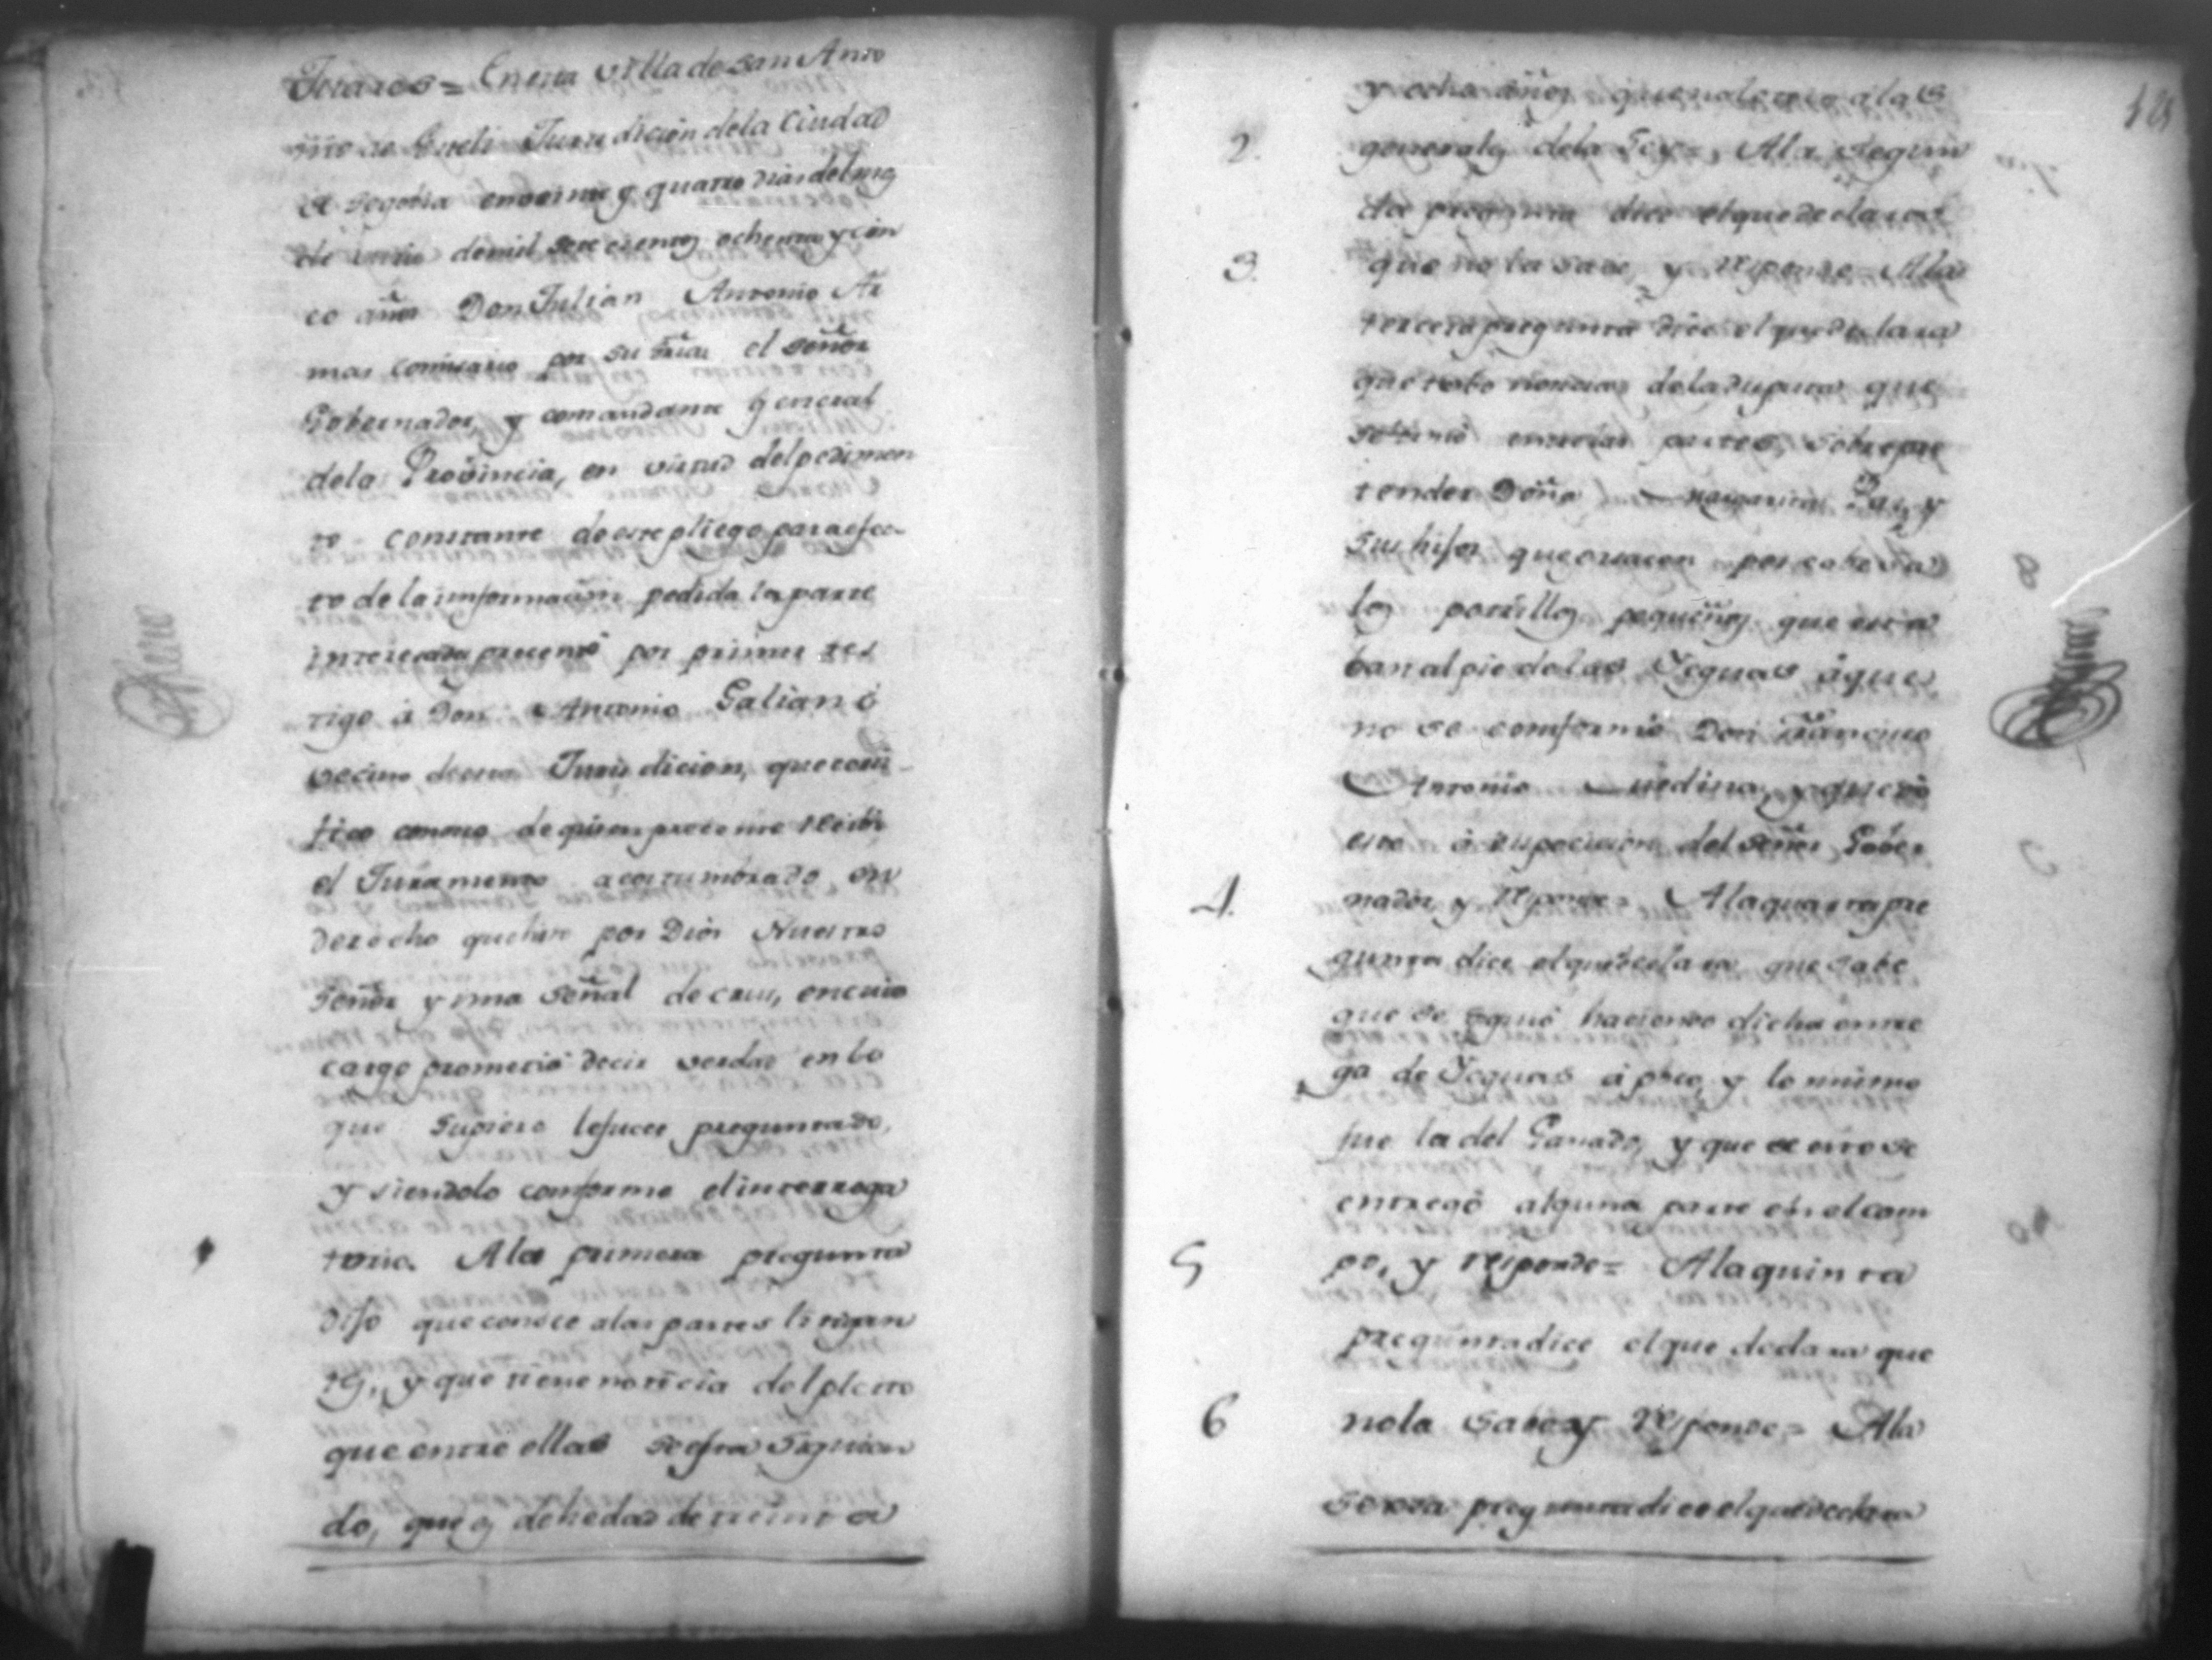 Enesta villa de san Anto
nio de Esteli Jurisdicion dela Ciudad
de Segobia enveinte y quatro dias del mes
de demil setecientos ochenta y cin
co años Don Julian Antonio Ar
mas comisario por su el señor
Gobernador, y comandante general
dela Provincia, en virtud delpedimen
to constante deestepliego paraefec
to delainformacion pedida laparte
interesada presentó por primer tes
tigo á Don Antonio Galiano
vecino deesta Jurisdicion, quecerti
fico conosco dequienpresente recibi
el Juramento acostumbrado en
derecho quehizo por Dios Nuestro
Señor y una señal decruz, encuio
cargo prometió decir verdad enlo
que supiere lefuere preguntado,
y siendolo conforme elinterroga
torio. Ala primera pregunta
dijo queconoce alas partes litigan
tes, y que tienenoticia delpleito
que entre ellas seesta siguien
do, que es dehedad detreinta
y ocho años quenoletocan alas
2. generales dela Ley= Ala segun
da pregunta dice elquedeclara
3. que no la save, y responde= Ala
tercerapregunta dice elquedeclara
quetubo noticias deladisputa que
setubo entrelas partes, sobrepre
tender Doña Margarita y
sus hijos queentrasen por cabeza
los potrillos pequeños que esta
ban alpie delas Yeguas, áque
no se conformó Don Francisco
Antonio Medina, yquevó
esto á disposicion del señor Gober
4. nador, y responde= Alaquarta pre
gunta dice elquedeclara que sabe
que se siguió haciendo dicha entre
ga de Yeguas á poco, y lo mismo
fue ladel Ganado, y que de esto se
entregó alguna parte en elcam
5 po, y responde= Alaquinta
preguntadice elque declara que
6 nola sabe y responde= Ala
sexta preguntadice elquedeclara